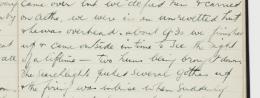 came over but we defied him & carried
on Aethe, we were in an unrevetted hut
& he was overhead. about 9/30 we finished
up & came outside in time to see the sight
of a lifetime – two Huns being brought down
the searchlights picked several Gothas up
& the firing was intense when suddenly